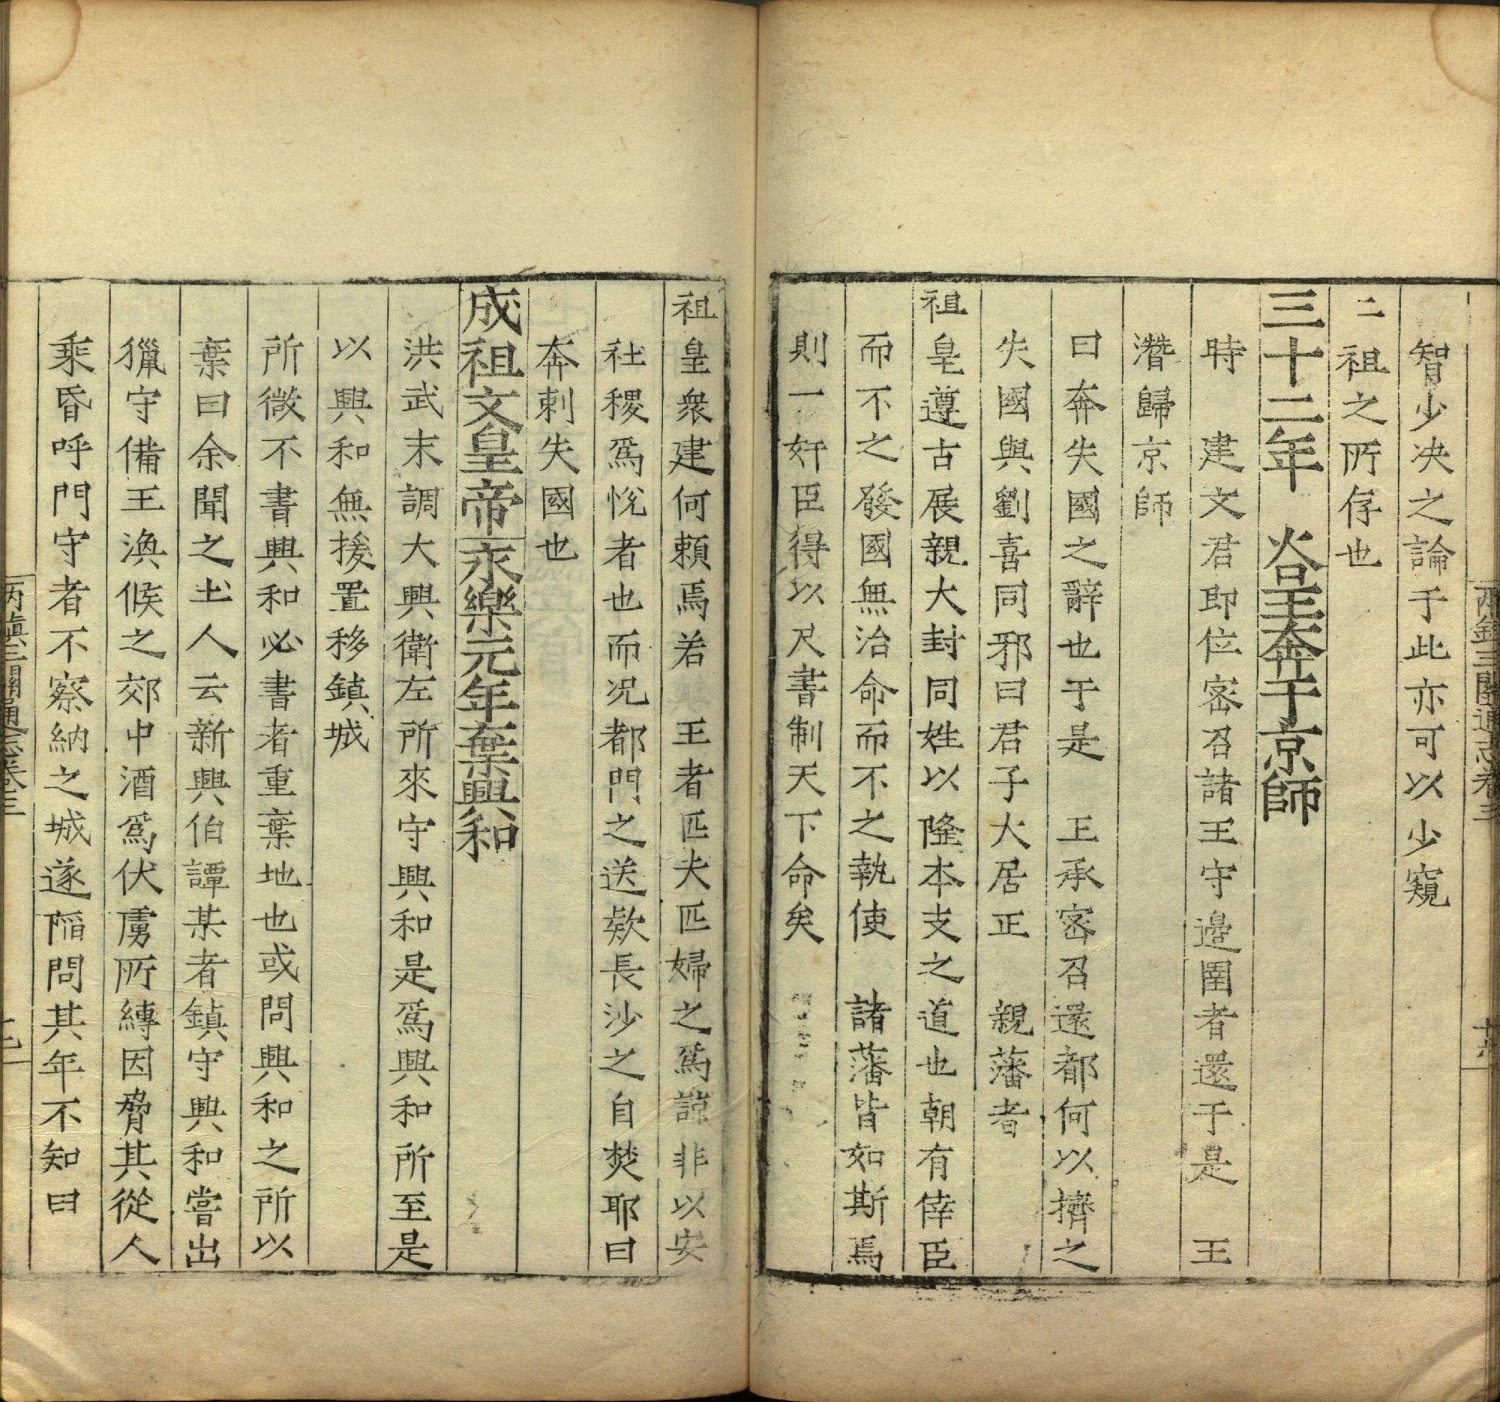 兩鎮三關通志卷三
智少决之論于此亦可以少窺
二祖之所存也
三十二年 谷王奔于京師
時 建文君即位密召諸王守邊圉者還于是 王
潛歸京師
曰奔失國之辭也于是 王承密召還都何以擠之
失國與劉喜同邪曰君子大居正 親藩者
祖皇遵古展親大封同姓以隆本支之道也朝有倖臣
而不之發國無治命而不之執使 諸藩皆如斯焉
則一奸臣得以尺書制天下命矣
祖皇衆建何賴焉若 王者匹夫匹婦之爲諒非以安
社稷爲悅者也而况都門之送欵長沙之自焚耶曰
奔刺失國也
成祖文皇帝永樂元年棄興和
洪武末調大興衛左所來守興和是爲興和所至是
以興和無援置移鎮城
所徵不書興和必書者重棄地也或問興和之所以
棄曰余聞之土人云新興伯譚某者鎮守興和嘗出
獵守備王渙候之郊中酒爲伏虜所縛因脅其從人
乘昏呼門守者不察納之城遂陷問其年不知曰
兩鎮三關通志卷三